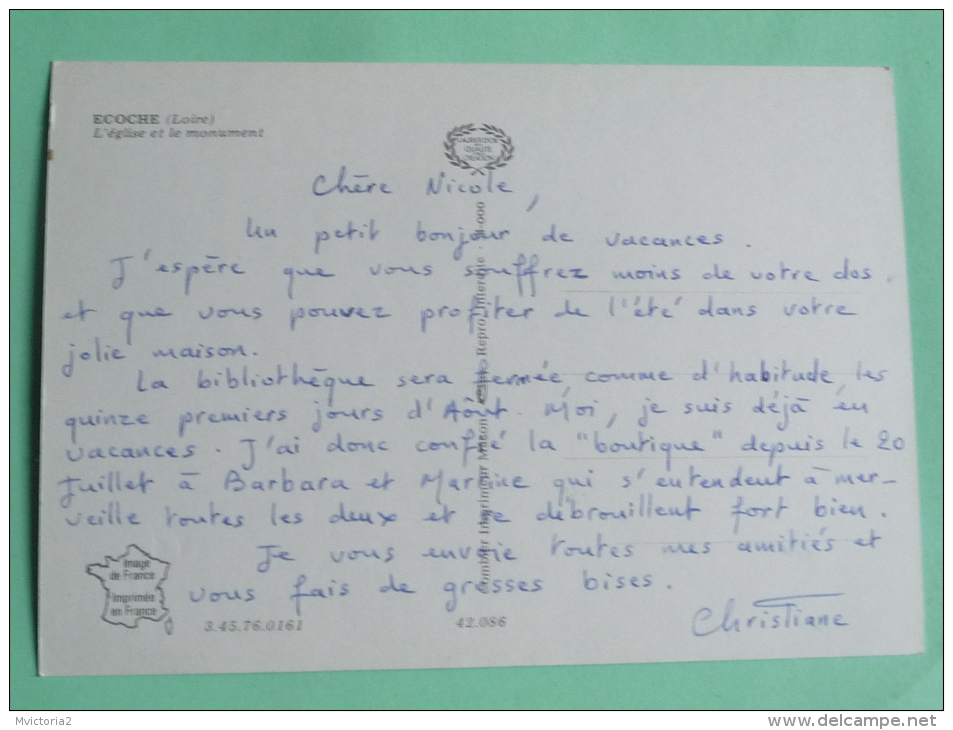 ECOCHE (Loire)
L'église et le monument
Chère Nicole,
Un petit bonjour de vacances.
J'espère que vous souffrez moins de votre dos.
et que vous pouvez profiter de l'été dans votre
jolie maison.
La bibliothèque sera fermée, comme d'habitude, les
quinze premiers jours d'Aôut. Moi, je suis déjà en
vacances. J'ai donc confié la "boutique" depuis le 20
Juillet à Barbara et Martine qui s'entendent à mer-
veille toutes les deux et se débrouillent fort bien.
Je vous envoie toutes mes amitiés et
vous fais de grosses bises.
Christiane
Image
de France
Imprimée
en France
3.45.76.0161
42.086
Combier Imprimeur Macon
Mvictoria2
www.delcampe.net